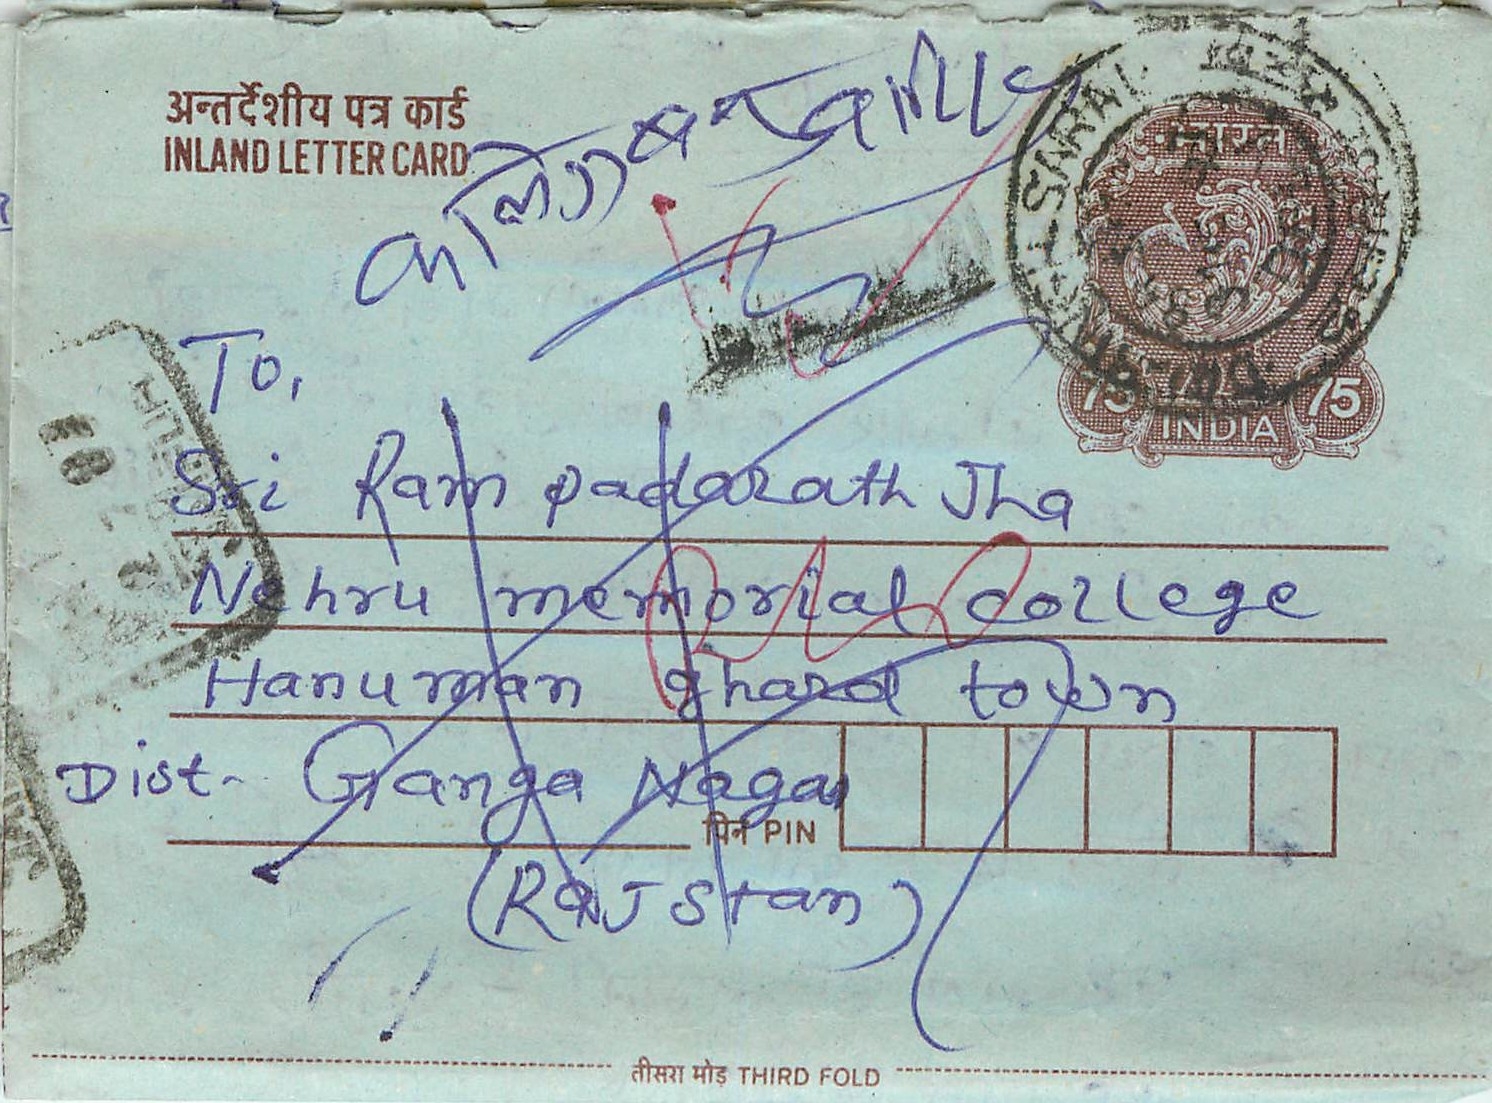 अन्तर्देशीय पत्र कार्ड
INLAND LETTER CARD
भारत
75 75
INDIA
To,
Sri Ram padarath Jha
Nehru memorial college
Hanuman ghard town
Dist- Ganga Nagar
पिन PIN
(Rajstan)
तीसरा मोड़ THIRD FOLD